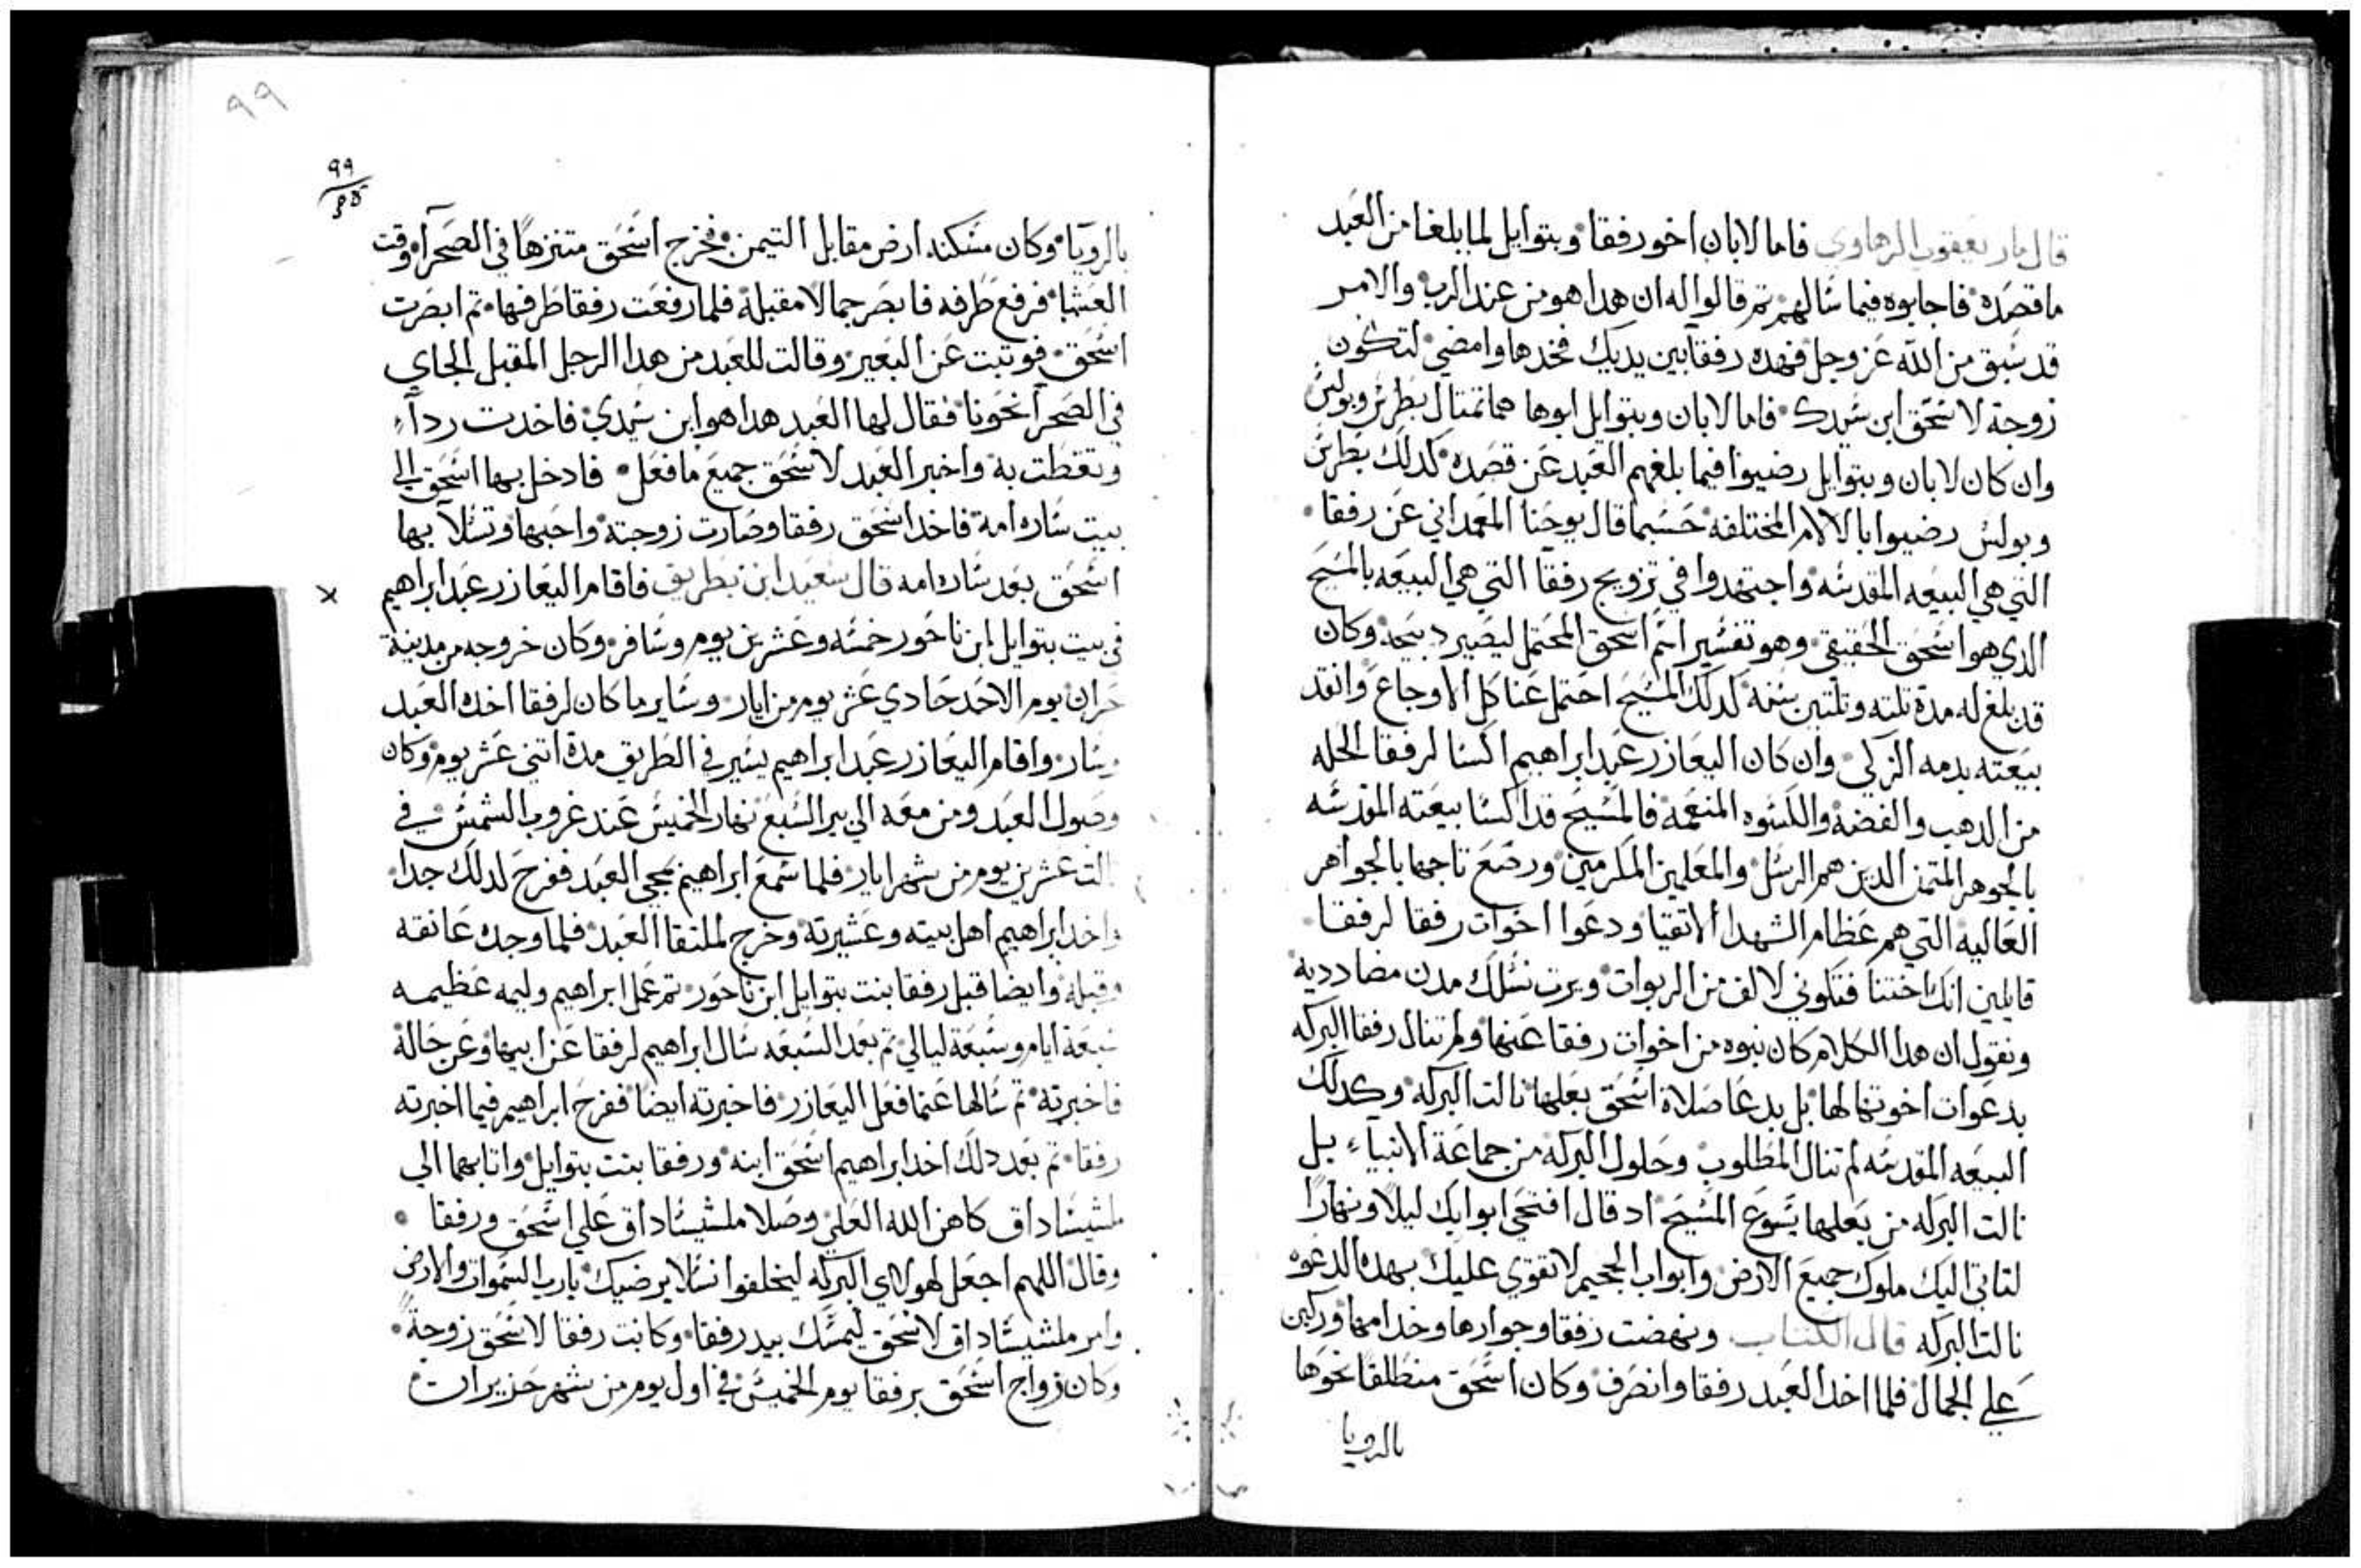 قال مار يعقوب الرهاوي فاما لابان اخو رفقا وبتوايل لما بلغا من العبد
ما قصده فاجابوه فيما سالهم تم قالوا له ان هدا هو من عند الرب والامر
قد سبق من الله عز وجل فهده رفقا بين يديك فخدها وامضي لتكون
زوجة لاسحق ابن سيدك فاما لابان وبتوايل ابوها هما تمتال بطرس وبولس
وان كان لابان وبتوايل رضيوا فيما بلغهم العبد عن قصده كدلك بطرس
وبولس رضيوا بالالام المختلفه حسبما قال يوحنا المعمداني عن رفقا
التي هي البيعه المقدسه واجتهدوا في تزويج رفقا التي هي البيعه بالمسيح
الدي هو اسحق الحقيقي وهو تفسير اسم اسحق المحتمل ليصير دبيحة وكان
قد بلغ له مدة تلته وتلتين سنه كدلك المسيح احتمل عنا كل الاوجاع وانقد
بيعته بدمه الزكي وان كان اليعازر عبد ابراهيم اكسا لرفقا الحله
من الدهب والفضة والكسوه المنعمة فالمسيح قد اكسا بيعته المقدسه
بالجوهر المتمن الدين هم الرسل والمعلمين المكرمين ورصع تاجها بالجواهر
العاليه التي هم عظام الشهدا الاتقيا ودعوا اخوات رفقا لرفقا
قايلين انك اختنا فتكوني لالف من الربوات ويرت نسلك مدن مضادديه
ونقول ان هدا الكلام كان نبوه من اخوات رفقا عنها ولم تنال رفقا البركه
بدعوات اخوتها لها بل بدعا صلاة اسحق بعلها نالت البركه وكدلك
البيعه المقدسه لم تنال المطلوب وحلول البركه من جماعة الانبياء بل
نالت البركه من بعلها يسوع المسيح اد قال افتحي ابوابك ليلا ونهارا
لتاتي اليك ملوك جميع الارض وابواب الجحيم لا تقوي عليك بهده الدعوه
نالت البركه قال الكتاب ونهضت رفقا وجوارها وخدامها وركبن
علي الجمال فلما اخد العبد رفقا وانصرف وكان اسحق منطلقا نحوها
بالرويا
٩٩
٩٩
بالرويا وكان مسكنه ارض مقابل التيمن فخرج اسحق متنزها في الصحرا وقت
العشيا فرفع طرفه فابصر جمالا مقبلة فلما رفعت رفقا طرفها تم ابصرت
اسحق فوتبت عن البعير وقالت للعبد من هدا الرجل المقبل الجاي
في الصحرا نحونا فقال لها العبد هدا هو ابن سيدي فاخدت رداء
وتغطت به واخبر العبد لاسحق جميع ما فعل فادخل بها اسحق الي
بيت ساره امة فاخد اسحق رفقا وصارت زوجتة واحبها وتسلا بها
اسحق بعد ساره امه قال سعيد ابن بطريق فاقام اليعازر عبد ابراهيم
في بيت بتوايل ابن ناحور خمسه وعشرين يوم وسافر وكان خروجه من مدينة
حران يوم الاحد حادي عشر يوم من ايار وساير ما كان لرفقا اخده العبد
وسار واقام اليعازر عبد ابراهيم يسير في الطريق مدة اتني عشر يوم وكان
وصول العبد ومن معه الي بير السبع نهار الخميس عند غروب الشمس في
تالت عشرين يوم من شهر ايار فلما سمع ابراهيم بمجي العبد ففرح لدلك جدا
واخد ابراهيم اهل بيته وعشيرته وخرج لملتقا العبد فلما وجده عانقه
وقبله وايضا قبل رفقا بنت بتوايل ابن ناحور تم عمل ابراهيم وليمه عظيمه
سبعة ايام وسبعة ليالي تم بعد السبعه سال ابراهيم لرفقا عن ابيها وعن حالة
فاخبرته تم سالها عنما فعل اليعازر فاخبرته ايضا ففرح ابراهيم فيما اخبرته
رفقا تم بعد دلك اخد ابراهيم اسحق ابنه ورفقا بنت بتوايل واتا بهما الي
ملشيساداق كاهن الله العلي وصلا ملشيساداق علي اسحق ورفقا
وقال اللهم اجعل لهولاي البركه ليخلفوا نسلا يرضيك يارب السموات والارض
وامر ملشيساداق لاسحق ليمسك بيد رفقا وكانت رفقا لاسحق زوجة
وكان زواج اسحق برفقا يوم الخميس في اول يوم من شهر حزيران